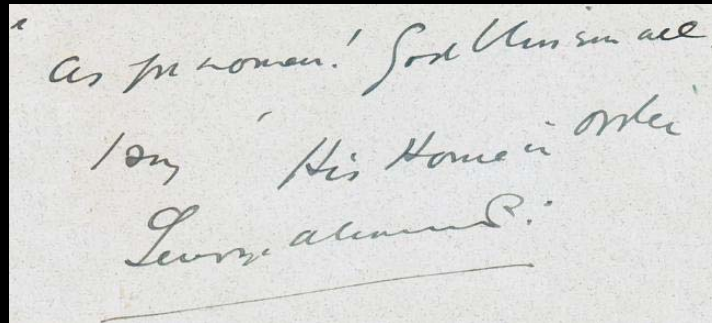 "As for women! God bless em all
I say"
His House in order
George Alexander